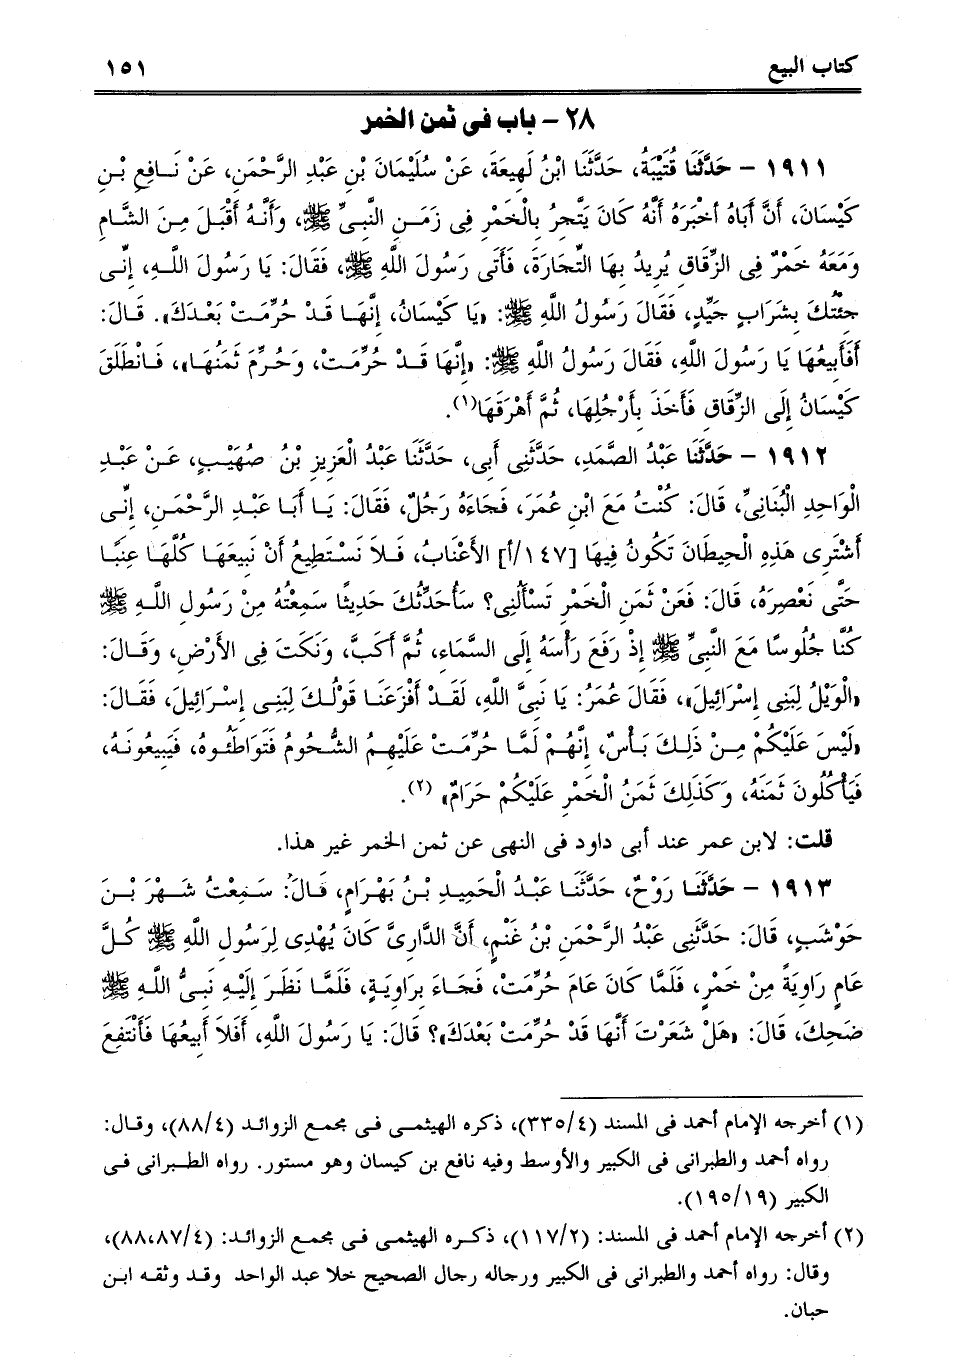 كتاب البيع ١٥١
٢٨ – باب فى ثمن الخمر
١٩١١ – حَدَّثَنَا قُتَيْبَةُ، حَدَّثَنَا ابْنُ لَهِيعَةَ، عَنْ سُلَيْمَانَ بْنِ عَبْدِ الرَّحْمَنِ، عَنْ نَافِعِ بْنِ
كَيْسَانَ، أَنَّ أَبَاهُ أَخْبَرَهُ أَنَّهُ كَانَ يَتَّجِرُ بِالْخَمْرِ فِى زَمَنِ النَّبِىِّ ﷺ، وَأَنَّهُ أَقْبَلَ مِنَ الشَّامِ
وَمَعَهُ خَمْرٌ فِى الزِّقَاقِ يُرِيدُ بِهَا التِّجَارَةَ، فَأَتَى رَسُولَ اللَّهِ ﷺ، فَقَالَ: يَا رَسُولَ اللَّهِ، إِنِّى
جِئْتُكَ بِشَرَابٍ جَيِّدٍ، فَقَالَ رَسُولُ اللَّهِ ﷺ: «يَا كَيْسَانُ، إِنَّهَا قَدْ حُرِّمَتْ بَعْدَكَ». قَالَ:
أَفَأَبِيعُهَا يَا رَسُولَ اللَّهِ، فَقَالَ رَسُولُ اللَّهِ ﷺ: «إِنَّهَا قَدْ حُرِّمَتْ، وَحُرِّمَ ثَمَنُهَا»، فَانْطَلَقَ
كَيْسَانُ إِلَى الزِّقَاقِ فَأَخَذَ بِأَرْجُلِهَا، ثُمَّ أَهْرَقَهَا(١).
١٩١٢ – حَدَّثَنَا عَبْدُ الصَّمَدِ، حَدَّثَنِى أَبِى، حَدَّثَنَا عَبْدُ الْعَزِيزِ بْنُ صُهَيْبٍ، عَنْ عَبْدِ
الْوَاحِدِ الْبُنَانِىِّ، قَالَ: كُنْتُ مَعَ ابْنِ عُمَرَ، فَجَاءَهُ رَجُلٌ، فَقَالَ: يَا أَبَا عَبْدِ الرَّحْمَنِ، إِنِّى
أَشْتَرِى هَذِهِ الْحِيطَانَ تَكُونُ فِيهَا [١٤٧/أ] الأَعْنَابُ، فَلاَ نَسْتَطِيعُ أَنْ نَبِيعَهَا كُلَّهَا عِنَبًا
حَتَّى نَعْصِرَهُ، قَالَ: فَعَنْ ثَمَنِ الْخَمْرِ تَسْأَلُنِى؟ سَأُحَدِّثُكَ حَدِيثًا سَمِعْتُهُ مِنْ رَسُولِ اللَّهِ ﷺ
كُنَّا جُلُوسًا مَعَ النَّبِىِّ ﷺ إِذْ رَفَعَ رَأْسَهُ إِلَى السَّمَاءِ، ثُمَّ أَكَبَّ، وَنَكَتَ فِى الأَرْضِ، وَقَالَ:
«الْوَيْلُ لِبَنِى إِسْرَائِيلَ»، فَقَالَ عُمَرُ: يَا نَبِىَّ اللَّهِ، لَقَدْ أَفْزَعَنَا قَوْلُكَ لِبَنِى إِسْرَائِيلَ، فَقَالَ:
«لَيْسَ عَلَيْكُمْ مِنْ ذَلِكَ بَأْسٌ، إِنَّهُمْ لَمَّا حُرِّمَتْ عَلَيْهِمُ الشُّحُومُ فَتَوَاطَئُوهُ، فَيَبِيعُونَهُ،
فَيَأْكُلُونَ ثَمَنَهُ، وَكَذَلِكَ ثَمَنُ الْخَمْرِ عَلَيْكُمْ حَرَامٌ» (٢).
قلت: لابن عمر عند أبى داود فى النهى عن ثمن الخمر غير هذا.
١٩١٣ – حَدَّثَنَا رَوْحٌ، حَدَّثَنَا عَبْدُ الْحَمِيدِ بْنُ بَهْرَامٍ، قَالَ: سَمِعْتُ شَهْرَ بْنَ
حَوْشَبٍ، قَالَ: حَدَّثَنِى عَبْدُ الرَّحْمَنِ بْنُ غَنْمٍ، أَنَّ الدَّارِىَّ كَانَ يُهْدِى لِرَسُولِ اللَّهِ ﷺ كُلَّ
عَامٍ رَاوِيَةً مِنْ خَمْرٍ، فَلَمَّا كَانَ عَامَ حُرِّمَتْ، فَجَاءَ بِرَاوِيَةٍ، فَلَمَّا نَظَرَ إِلَيْهِ نَبِىُّ اللَّهِ ﷺ
ضَحِكَ، قَالَ: «هَلْ شَعَرْتَ أَنَّهَا قَدْ حُرِّمَتْ بَعْدَكَ»؟ قَالَ: يَا رَسُولَ اللَّهِ، أَفَلاَ أَبِيعُهَا فَأَنْتَفِعَ
(١) أخرجه الإمام أحمد فى المسند (٣٣٥/٤)، ذكره الهيثمى فى مجمع الزوائد (٨٨/٤)، وقال:
رواه أحمد والطبرانى فى الكبير والأوسط وفيه نافع بن كيسان وهو مستور. رواه الطبرانى فى
الكبير (١٩٥/١٩).
(٢) أخرجه الإمام أحمد فى المسند: (١١٧/٢)، ذكره الهيثمى فى مجمع الزوائد: (٨٨،٨٧/٤)،
وقال: رواه أحمد والطبرانى فى الكبير ورجاله رجال الصحيح خلا عبد الواحد وقد وثقه ابن
حبان.